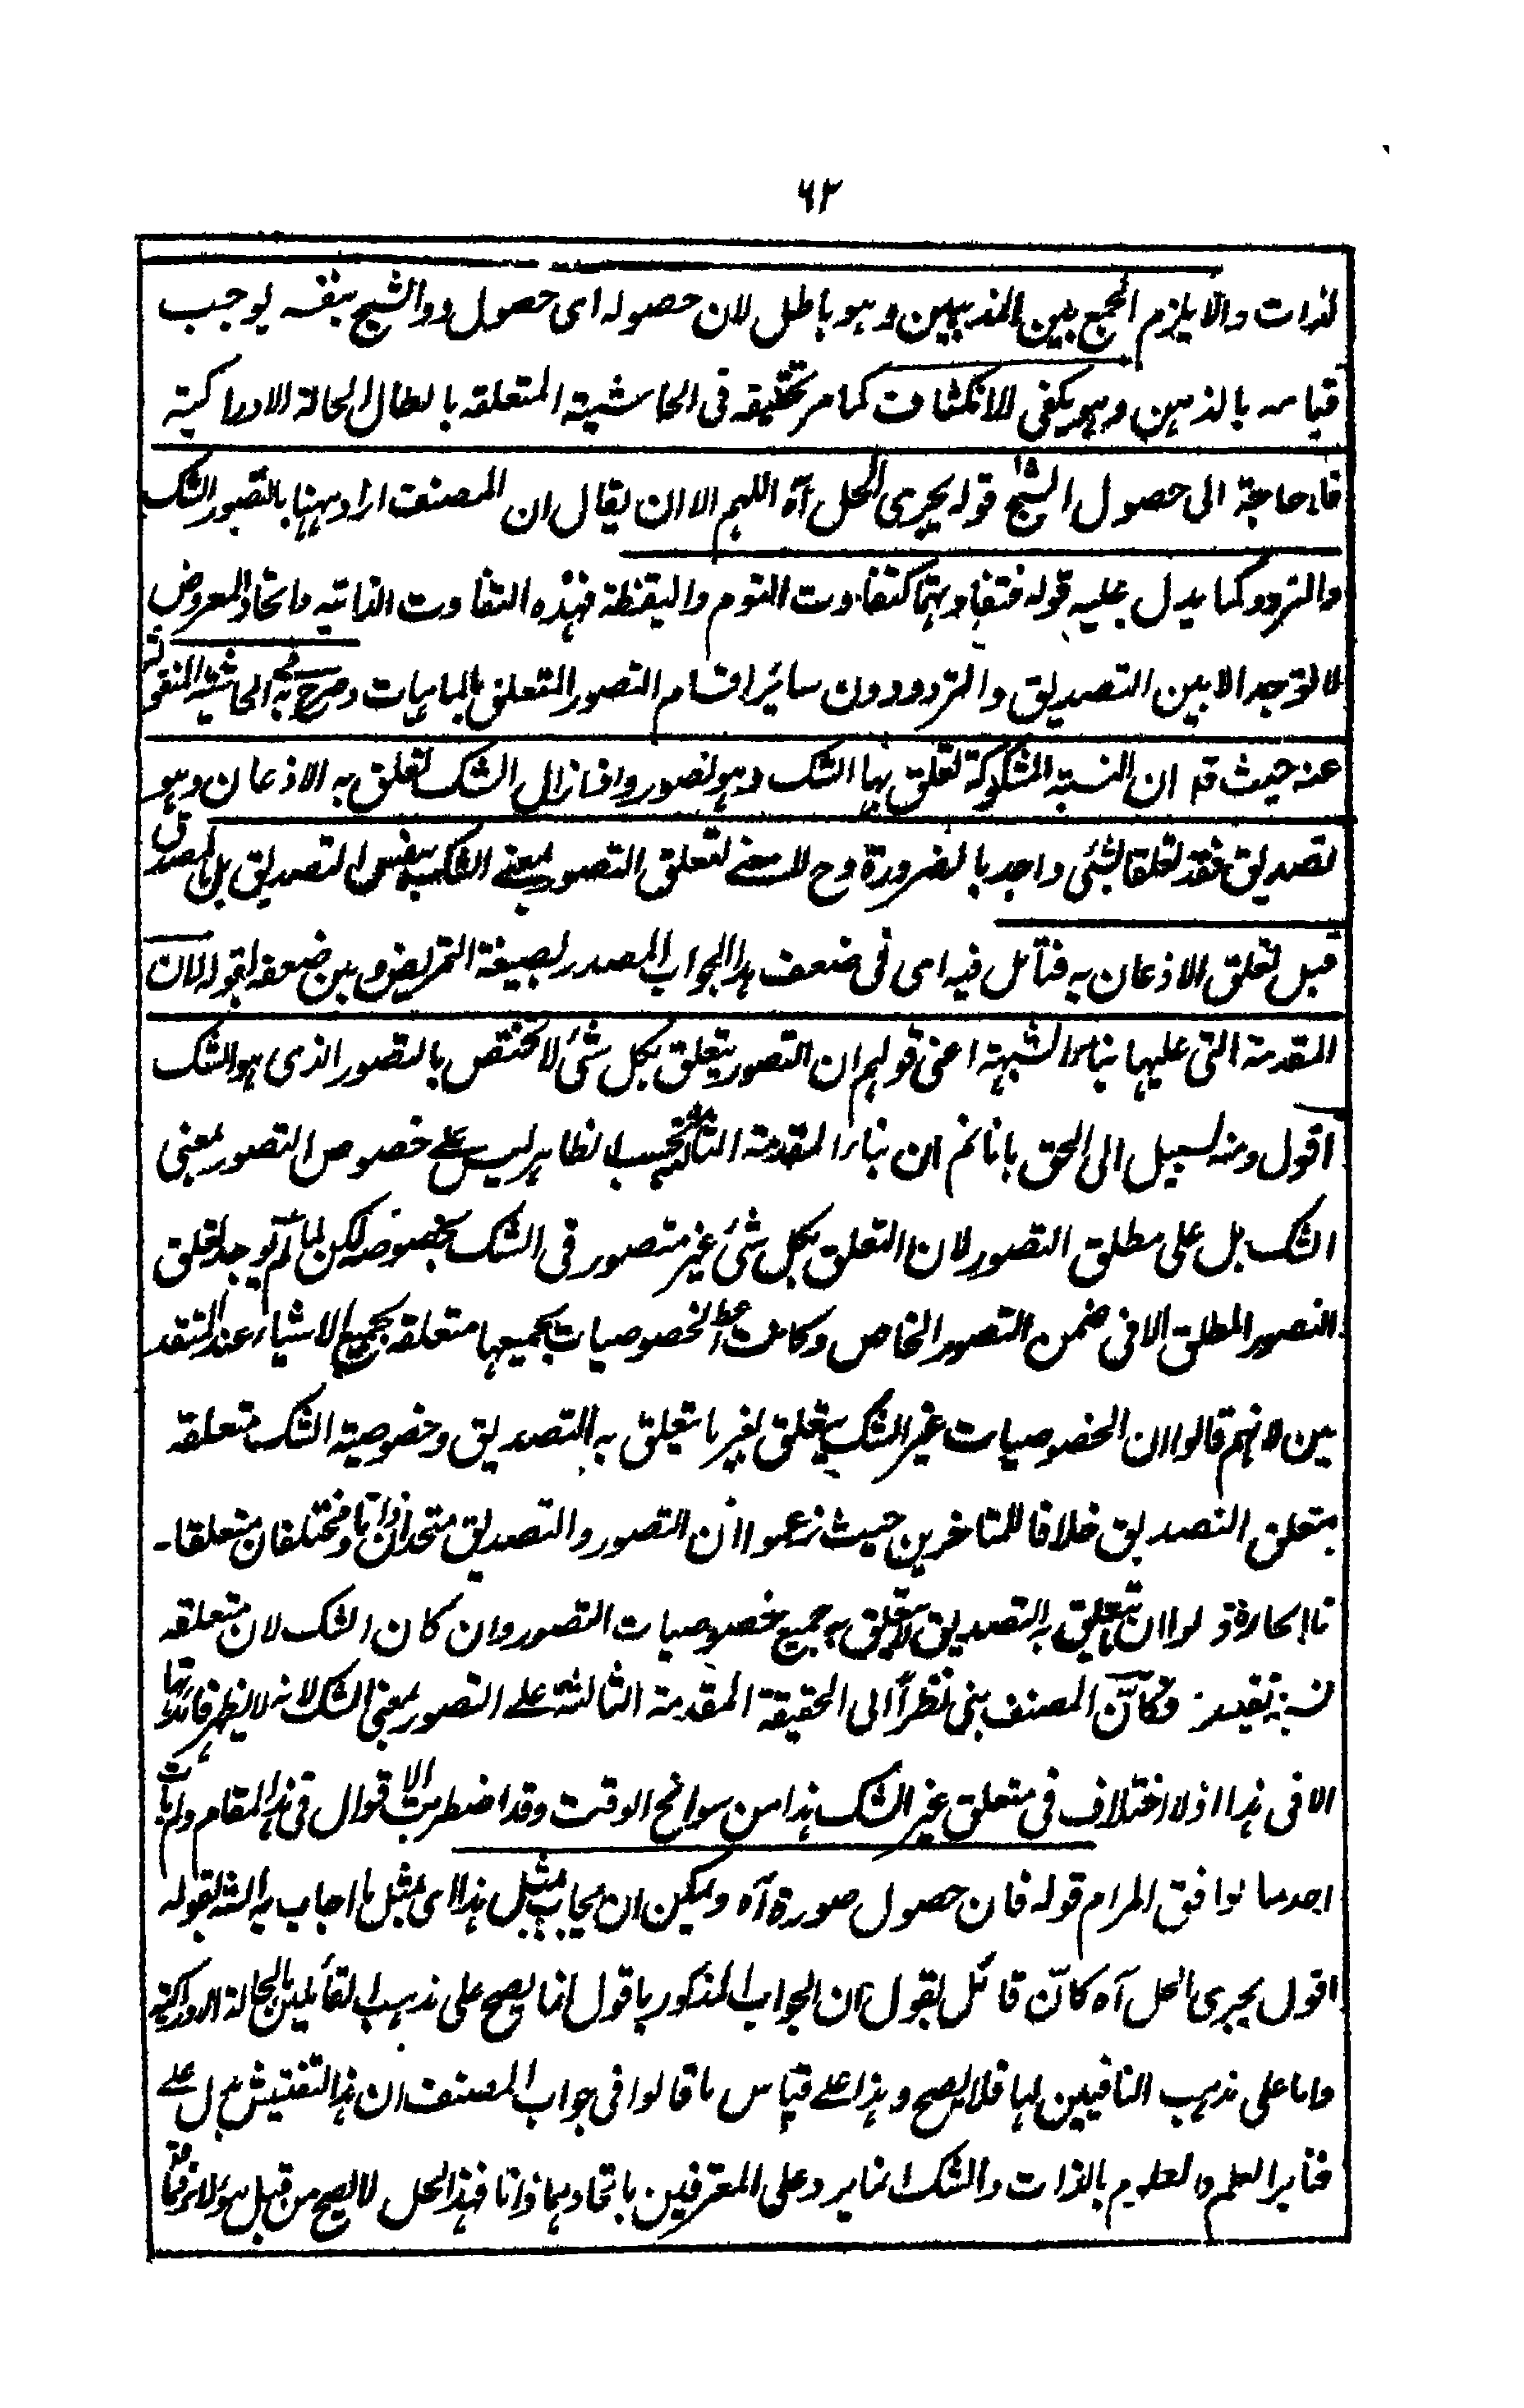 ٦٢
لذات والا يلزم الجمع بين المذهبين وهو باطل لان حصوله اى حصول ذو الشبح بنفسه يوجب
قيامه بالذهن وهو يكفى للانكشاف كما مر تحقيقه فى الحاشية المتعلقه بابطال الحالة الادراكية
فلا حاجة الى حصول الشبح قوله يجرى الحل آه اللهم الا ان يقال ان المصنف اراد ههنا بالتصور الشك
والتردد كما يدل عليه قوله فتفاوتهما كتفاوت النوم واليقظة فهذه التفاوت الذاتيه واتحاد المعروض
لا توجد الا بين التصديق والتردد دون سائر اقسام التصور المتعلق بالماهيات وصرح به فى الحاشية المنقولة
عنه حيث قم ان النسبة المشكوكة تعلق بها الشك وهو تصور واذا زال الشك تعلق به الاذعان وهو
تصديق فقد تعلقا بشئ واحد بالضرورة وح لا معنى لتعلق التصور بمعنى الشك بنفس التصديق بل بالمصدق
قبل تعلق الاذعان به فتأمل فيه اى فى ضعف هذا الجواب المصدر بصيغة التمريض وبين ضعفه بقوله لان
المقدمة التى عليها بناء الشبهة اعنى قولهم ان التصور يتعلق بكل شئ لا تختص بالتصور الذى هو الشك
اقول ومنه السبيل الى الحق بانا نم ان بناء المقدمة الثالثة بحسب الظاهر ليس على خصوص التصور بمعنى
الشك بل على مطلق التصور لان التعلق بكل شئ غير متصور فى الشك بخصوصه لكن لما لم يوجد تعلق
التصور المطلق الا فى ضمن التصور الخاص وكانت الخصوصيات بجميعها متعلقة بجميع الاشياء عند المتقد
مين لانهم قالوا ان الخصوصيات غير الشك يتعلق بغير ما يتعلق به التصديق وخصوصية الشك متعلقه
بمتعلق التصديق خلافا للمتاخرين حيث زعموا ان التصور والتصديق متحدان ذاتا ومختلفان متعلقا۔
قالوا ان يتعلق به التصديق لا يتعلق به جميع خصوصيات التصور وان كان الشك لان متعلقه
نسبة تقييدية وكأن المصنف بنى نظراً الى الحقيقة المقدمة الثالثة على التصور بمعنى الشك لانه لا يظهر فائدتها
الا فى هذا اذ لا اختلاف فى متعلق غير الشك هذا من سوانح الوقت وقد اضطربت الاقوال فى هذا المقام ولم يات
احد بما يوافق المرام قوله فان حصول صورة آه ويمكن ان يجاب بمثل هذا اى بمثل ما اجاب به الشه بقوله
اقول يجرى الحل آه كان قائل يقول ان الجواب المذكور باقول انما يصح على مذهب القائلين بالحالة الادراكية
واما على مذهب النافيين لها فلا يصح وهذا على قياس ما قالوا فى جواب المصنف ان هذا التفتيش يدل على
تغاير العلم والمعلوم بالذات والشك انما يرد على المعترفين باتحادهما ذاتا فهذا الحل لا يصح من قبل هؤلاء